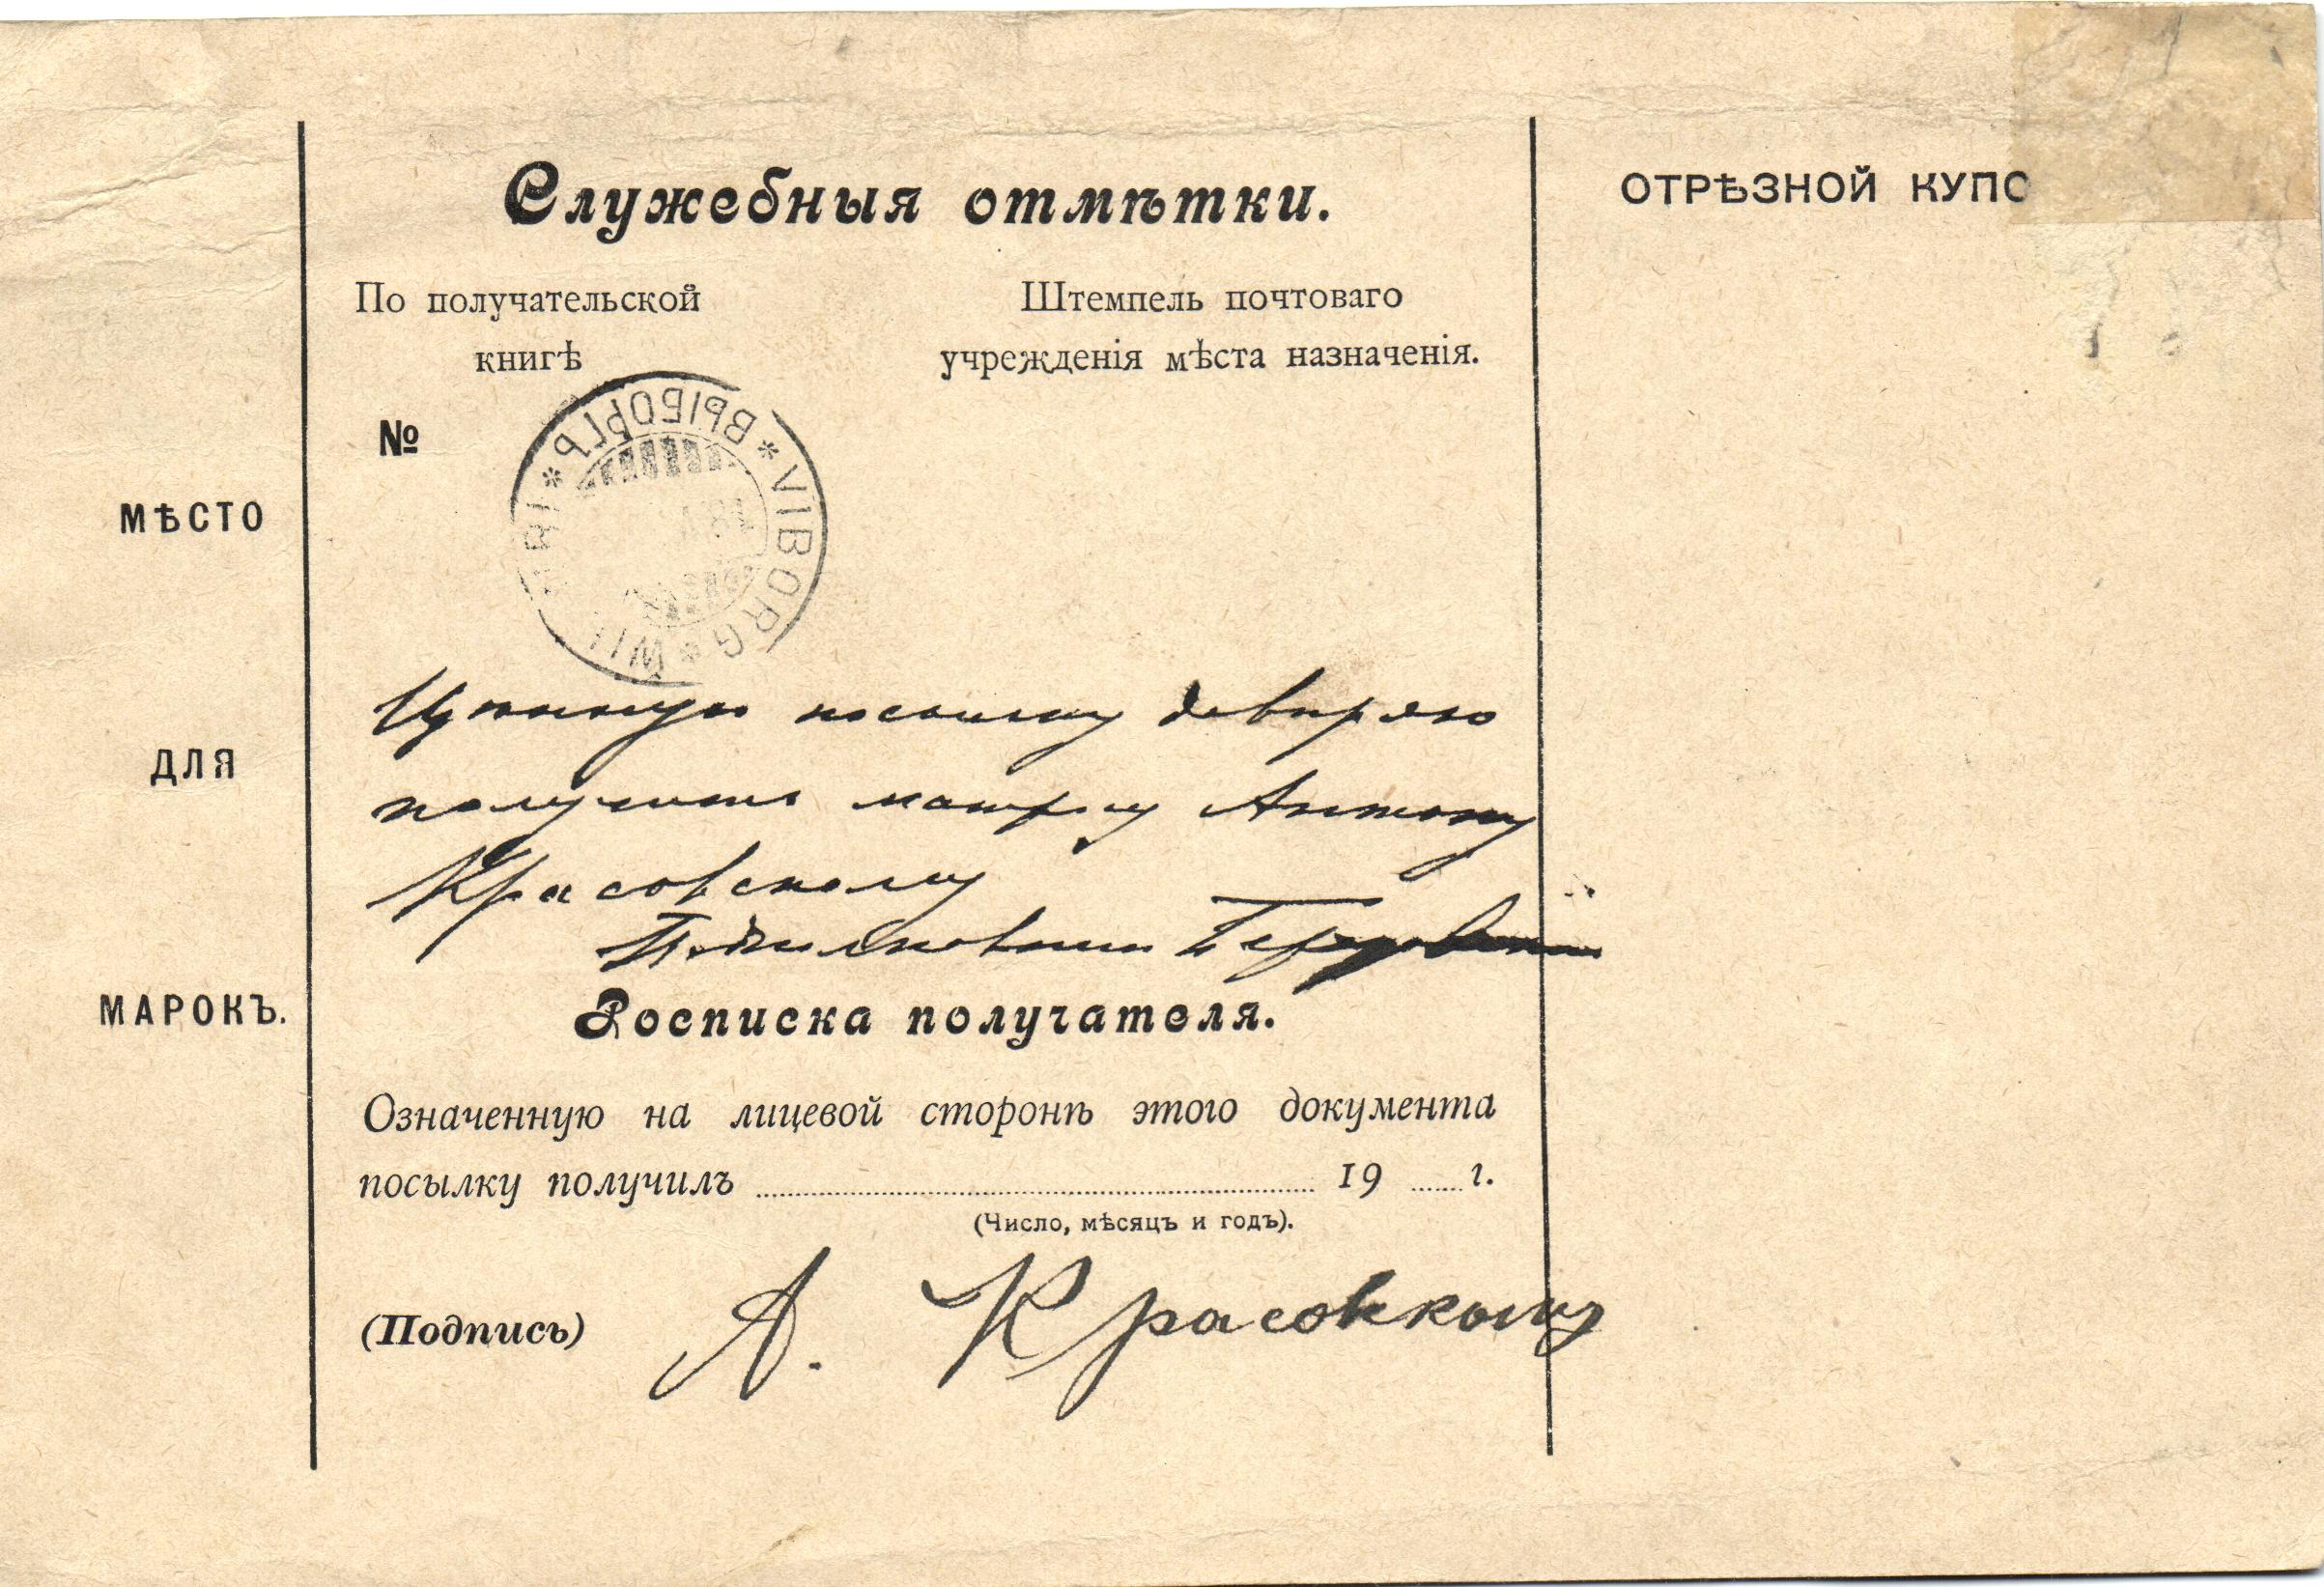 Служебныя отмѣтки.
ОТРѢЗНОЙ КУПО
По получательской
книгѣ
№
Штемпель почтоваго
учрежденія мѣста назначенія.
ВЫБОРГЪ * VIBORG * WII
МѢСТО
ДЛЯ
МАРОКЪ.
Цѣнную посылку довѣряю
получить Антону
Красовскому
Росписка получателя.
Означенную на лицевой сторонѣ этого документа
посылку получилъ 19 г.
(Число, мѣсяцъ и годъ).
(Подпись) А.